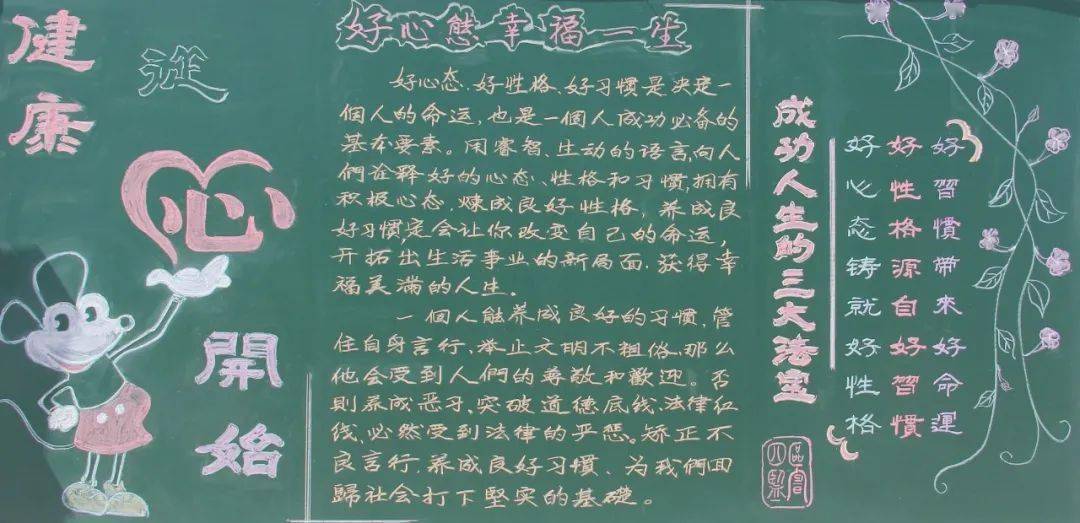 健康
從
心
開始
好心態幸福一生
好心态、好性格、好习慣是决定一
個人的命运，也是一個人成功必备的
基本要素。用睿智、生动的语言，向人
們诠释好的心态、性格和习慣，拥有
积极心态，煉成良好性格，养成良
好习慣，定会让你改变自己的命运，
开拓出生活事业的新局面，获得幸
福美满的人生。
一個人能养成良好的习慣，管
住自身言行，举止文明不粗俗，那么
他会受到人們的尊敬和歡迎。否
則养成恶习，突破道德底线、法律红
线，必然受到法律的严惩。矫正不
良言行，养成良好习慣，为我們回
歸社会打下堅实的基礎。
成功人生的三大法宝
好心态铸就好性格
好性格源自好習慣
好習慣帶來好命運